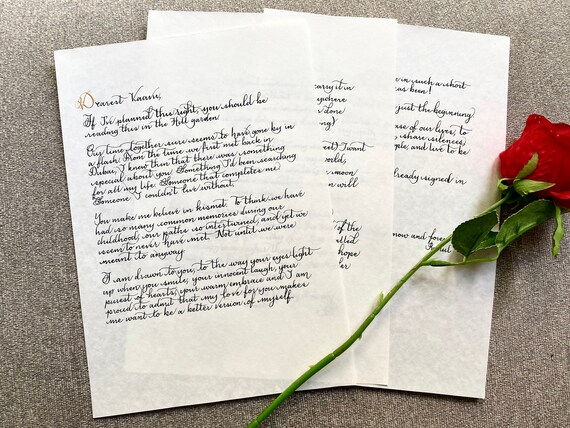 Dearest Vaavi,
If I've planned this right, you should be
reading this in the Hill garden
Our time together sure seems to have gone by in
a flash. From the time we first met back in
Dubai, I knew then that there was something
special about you. Something I'd been searching
for all my life. Someone that completes me.
Someone I couldn't live without.
You make me believe in kismet. To think we have
had so many common memories during our
childhood, our paths so intertwined, and yet we
seem to never have met. Not until we were
meant to anyway.
I am drawn to you, to the way your eyes light
up when you smile, your innocent laugh, your
purest of hearts, your warm embrace and I am
proud to admit that my love for you makes
me want to be a better version of myself.
carry it in
where
done
I want
world,
moon
will
of the
hope
in such a short
has been!
just the beginning
of our lives, to
share silences)
and live to be
already signed in
now and